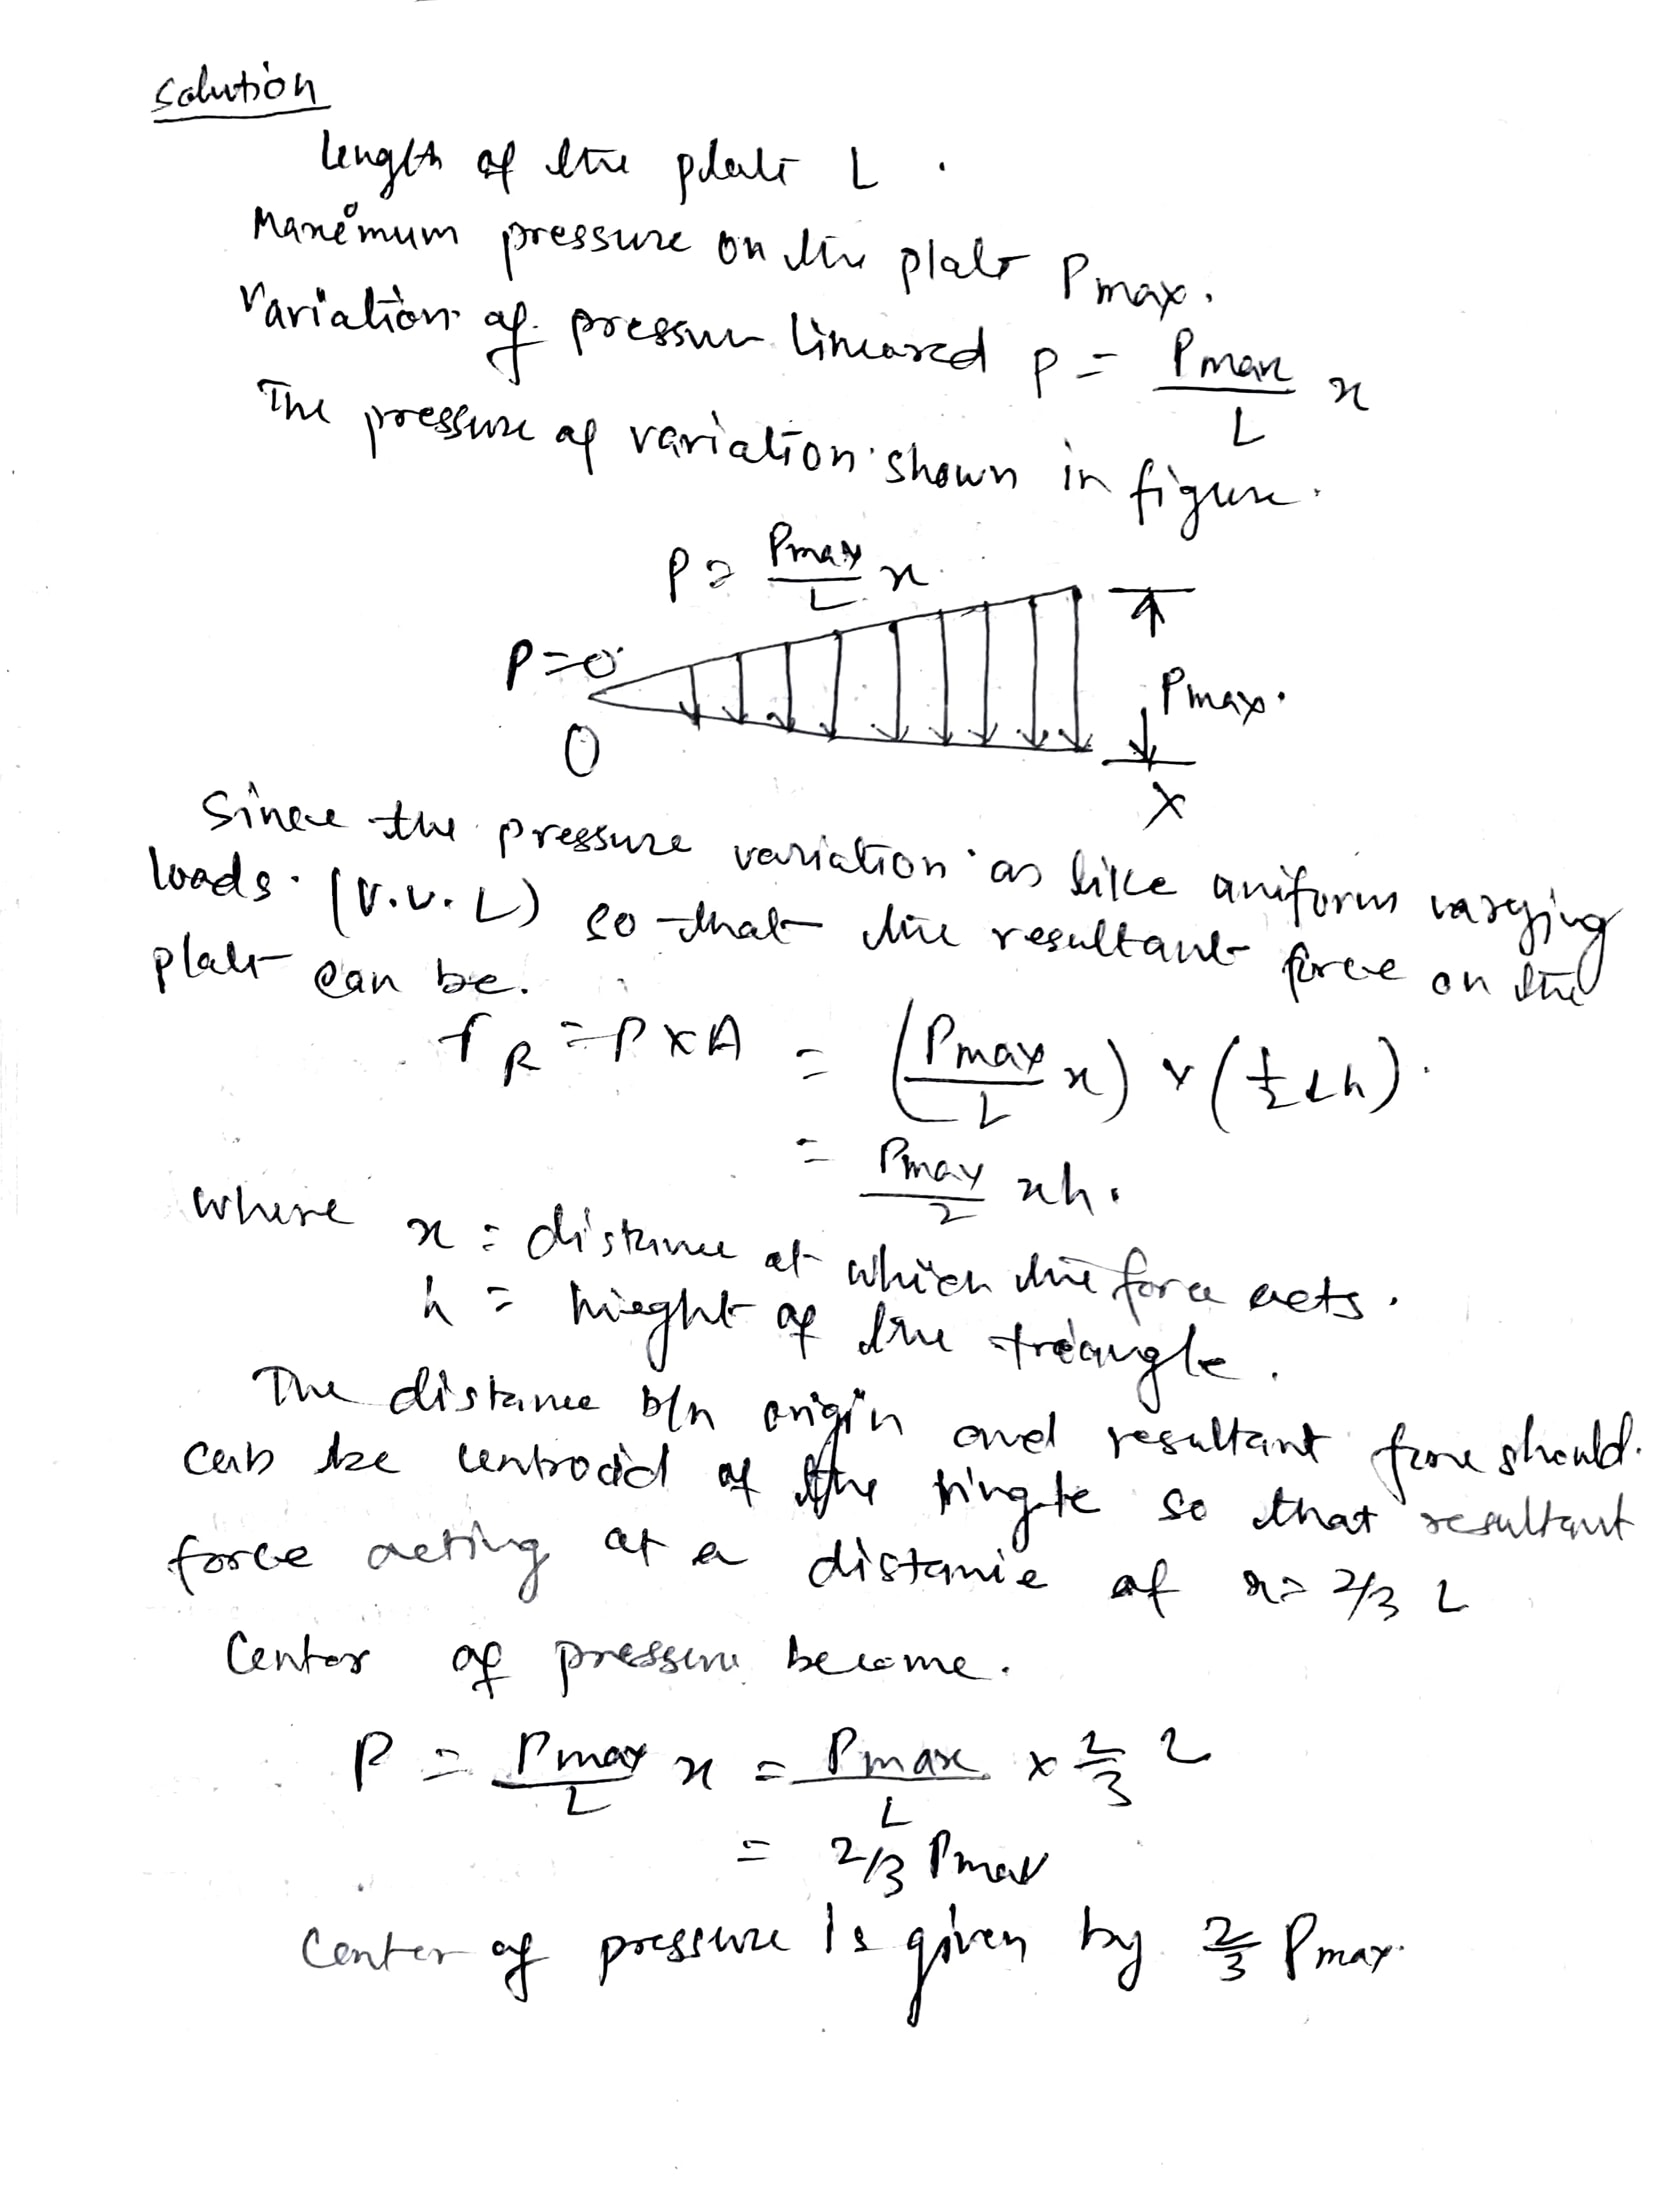 Solution
Length of the plate L .
Maximum pressure on the plate Pmax.
Variation of pressure lineared P = Pmax/L x
The pressure of variation shown in figure.
P = Pmax/L x
P=0
Pmax.
O
X
Since the pressure variation as like uniform varying
loads. (U.V.L) so that the resultant force on the
plate can be.
FR = P x A = (Pmax/L x) x (1/2 Lh).
= Pmax/2 xh.
where x = distance at which the force acts.
h = hieght of the triangle.
The distance b/n origin and resultant force should.
be centroid of the so that resultant
force acting at a distance of x = 2/3 L
Center of pressure become.
P = Pmax/L x = Pmax/L x 2/3 L
= 2/3 Pmax
Center of pressure is given by 2/3 Pmax.